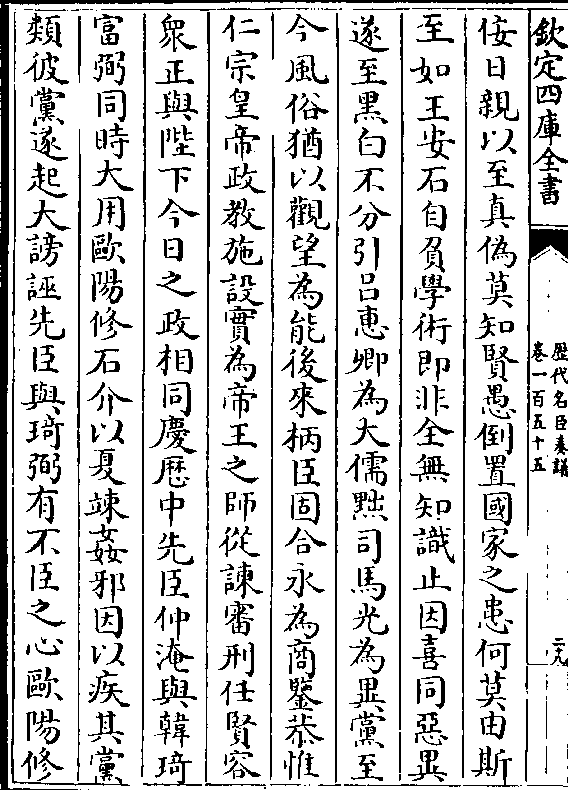 欽定四庫全書
歴代名臣奏議
卷一百五十五
二九
佞日親以至真偽莫知賢愚倒置國家之患何莫由斯
至如王安石自負學術即非全無知識止因喜同惡異
遂至黑白不分引吕惠卿為大儒黜司馬光為異黨至
今風俗猶以觀望為能後來柄臣固合永為商鑒恭惟
仁宗皇帝政教施設實為帝王之師從諫審刑任賢容
衆正與陛下今日之政相同慶厯中先臣仲淹與韓琦
富弼同時大用歐陽修石介以夏竦姦邪因以疾其黨
類彼黨遂起大謗誣先臣與琦弼有不臣之心歐陽修